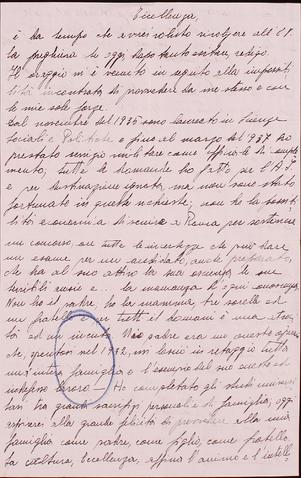 Eccellenza,
è da tempo che avrei voluto rivolgere all'E.V.
la preghiera che oggi, dopo tanto esitare,
Il coraggio mi è venuto in seguito alla impossi
bilità incontrata di provvedere da me stesso e con
le mie sole forze.
Dal novembre del 1935 sono laureato in Scienze
Sociali e Politiche e fino al marzo del 1937 ho
prestato servizio militare come ufficiale di comple
mento; tutte le domande ho fatto per l'A.I.
e per destinazione ignota, ma non sono stato
fortunato in queste richieste; non ho la possibi
lità economica di venire a Roma, per sostenere
un concorso, con tutte le incertezze che può dare
un esame per un candidato, anche preparato,
che ha al suo attivo la sua coscienza, le sue
terribili ansie e... la mancanza di ogni conoscenza.
Non ho il padre, ho la mamma, tre sorelle ed
un fratello e per tutti il domani è una
ed un incubo. Mio padre era un onesto
che, nel 1932, mi lasciò in retaggio tutta
una famiglia e l'esempio del suo onesto ed
indefesso lavoro. Ho completato gli studi
con grandi sacrifizi personali e di famiglia, oggi
alla grande felicità di provvedere alla mia
famiglia come padre, come figlio, come fratello.
La cultura, Eccellenza, affina l'animo e l'intell